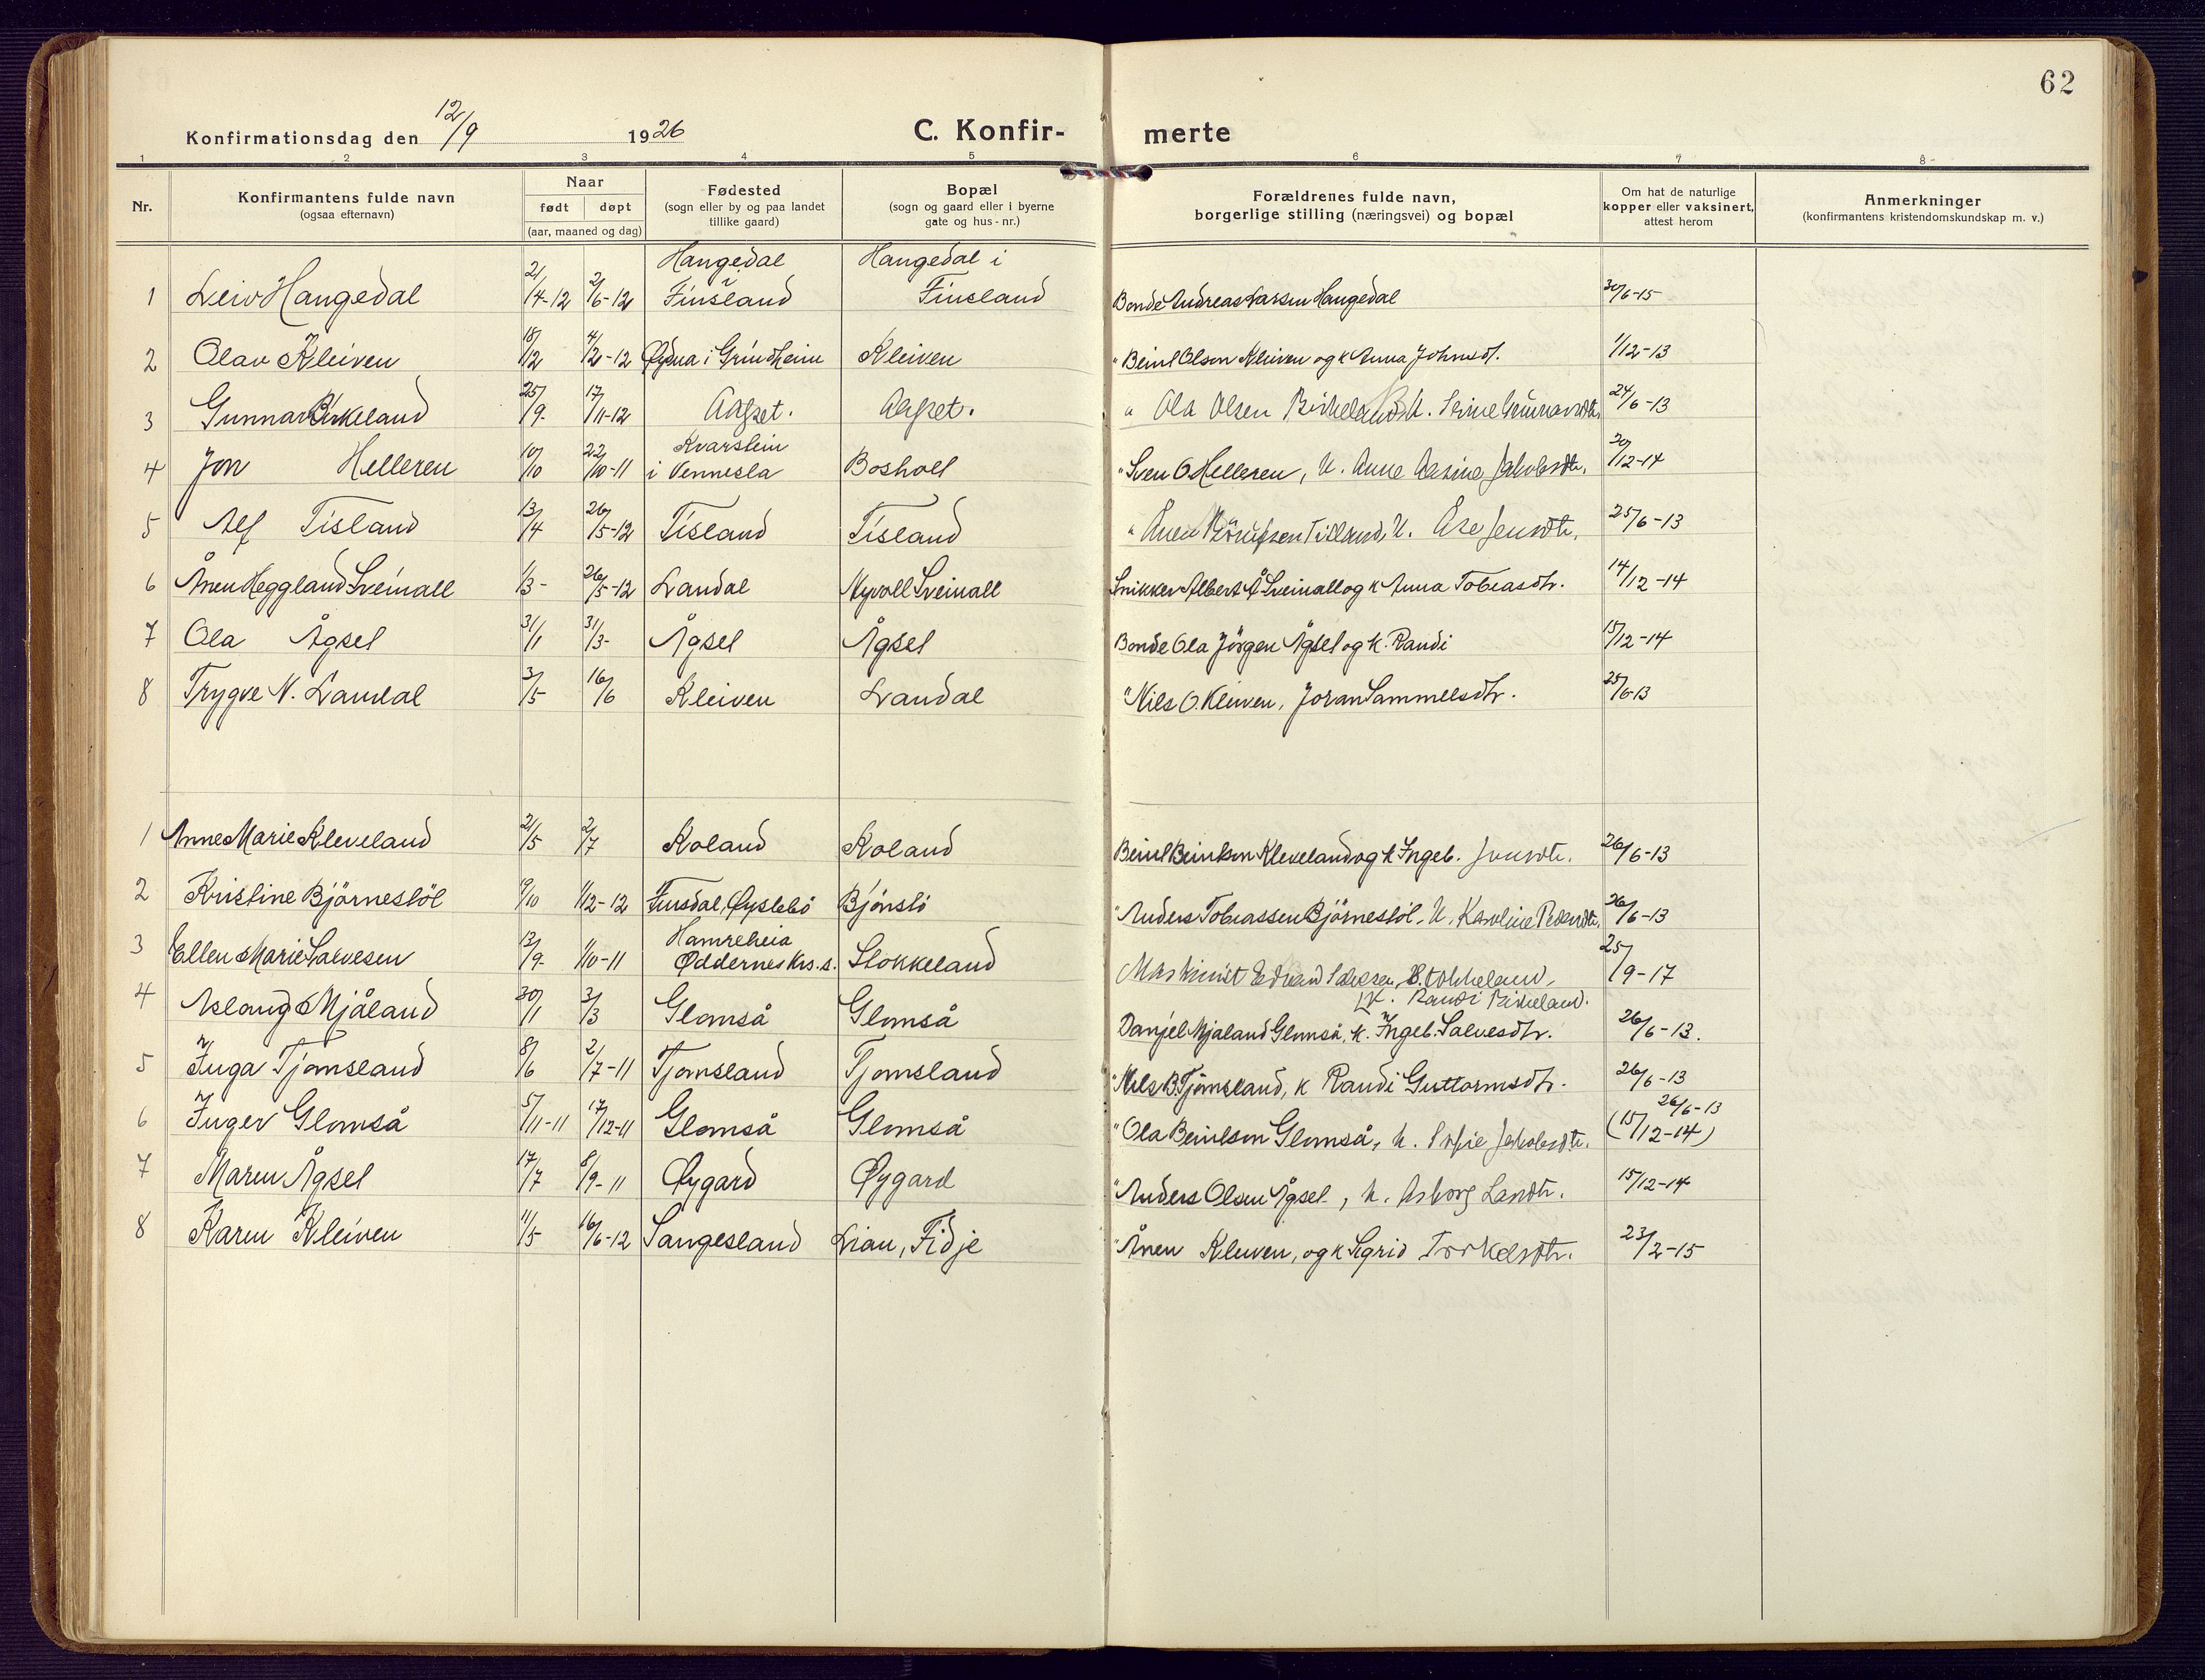 62
Konfirmationsdag den 12/9 1926 C. Konfir- merte
1 2 3 4 5 6 7 8
Nr. Konfirmantens fulde navn (ogsaa efternavn) Naar født døpt (aar, maaned og dag) Fødested (sogn eller by og paa landet tillike gaard) Bopæl (sogn og gaard eller i byerne gate og hus-nr.) Forældrenes fulde navn, borgerlige stilling (næringsvei) og bopæl Om hat de naturlige kopper eller vaksinert, attest herom Anmerkninger (konfirmantens kristendomskundskap m. v.)
1 Leiv Haugedal 21/4-12 2/6-12 Haugedal i Finsland Haugedal i Finsland Bonde Andreas Larsen Haugedal 30/6-15
2 Olav Kleiven 18/12 4/2-12 Øydna i Grindheim Kleiven " Beint Olson Kleiven og k Anna Johnsdt. 1/12-13
3 Gunnar Birkeland 25/9 17/11-12 Aagset. Aagset. " Ola Olsen Birkeland k. Gunnarsdtr. 24/6-13
4 Jon Helleren 10/10 22/10-11 Kvarstein i Vennesla Bosholl " Sven O Helleren, k. Anne Jakobsdtr. 20/12-14
5 Alf Tisland 13/4 26/5-12 Tisland Tisland " Ånen Tisland, k. Åse Jensdtr. 25/6-13
6 Ånen Heggland Sveinall 1/3- 26/5-12 Laudal Nyvoll Sveinall Snikker Albert Å Sveinall og k Anna Tobiasdtr. 14/12-14
7 Ola Ågsel 31/1 31/3- Ågsel Ågsel Bonde Ola Jörgen Ågsel og k. Randi 15/12-14
8 Trygve N. Laudal 3/5 16/6 Kleiven Laudal " Nils O. Kleiven, Joran Sammelsdtr. 25/6-13
1 Anne Marie Kleveland 21/5 2/7 Roland Roland Beint Beintson Kleveland og k Ingeb. Jensdtr. 26/6-13
2 Kristine Björnestöl 9/10 1/12-12 Finsdal, Øyslebö Björnstö " Anders Tobiassen Björnestöl. k. Karoline Pedersdtr. 26/6-13
3 Ellen Marie Salvesen 13/9- 1/10-11 Hamreheia Oddernes Krs.s. Stokkeland Maskinist Edvard Salvesen, Stokkeland,
k. Randi Birkeland. 25/9-17
4 Aslaug Mjåland 30/1 3/3 Glomså Glomså Danjel Mjaland Glomså, k. Ingeb. Salvesdtr. 26/6-13.
5 Inga Tjomsland 8/6 2/7-11 Tjomsland Tjomsland " Nils B. Tjömsland, k Randi Guttormsdtr. 26/6-13
6 Inger Glomså 5/11-11 17/12-11 Glomså Glomså " Ola Beintson Glomså, k. Sofie Jakobsdtr. 26/6-13 (15/12-14)
7 Maren Ågsel 17/7 8/9-11 Øygard Øygard " Anders Olsen Ågsel, k. Asborg Larsdtr. 15/12-14
8 Karen Kleiven 11/5 16/6-12 Sangesland Lian, Fidje " Ånen Kleiven, og k Sigrid Torkelsdtr. 23/2-15